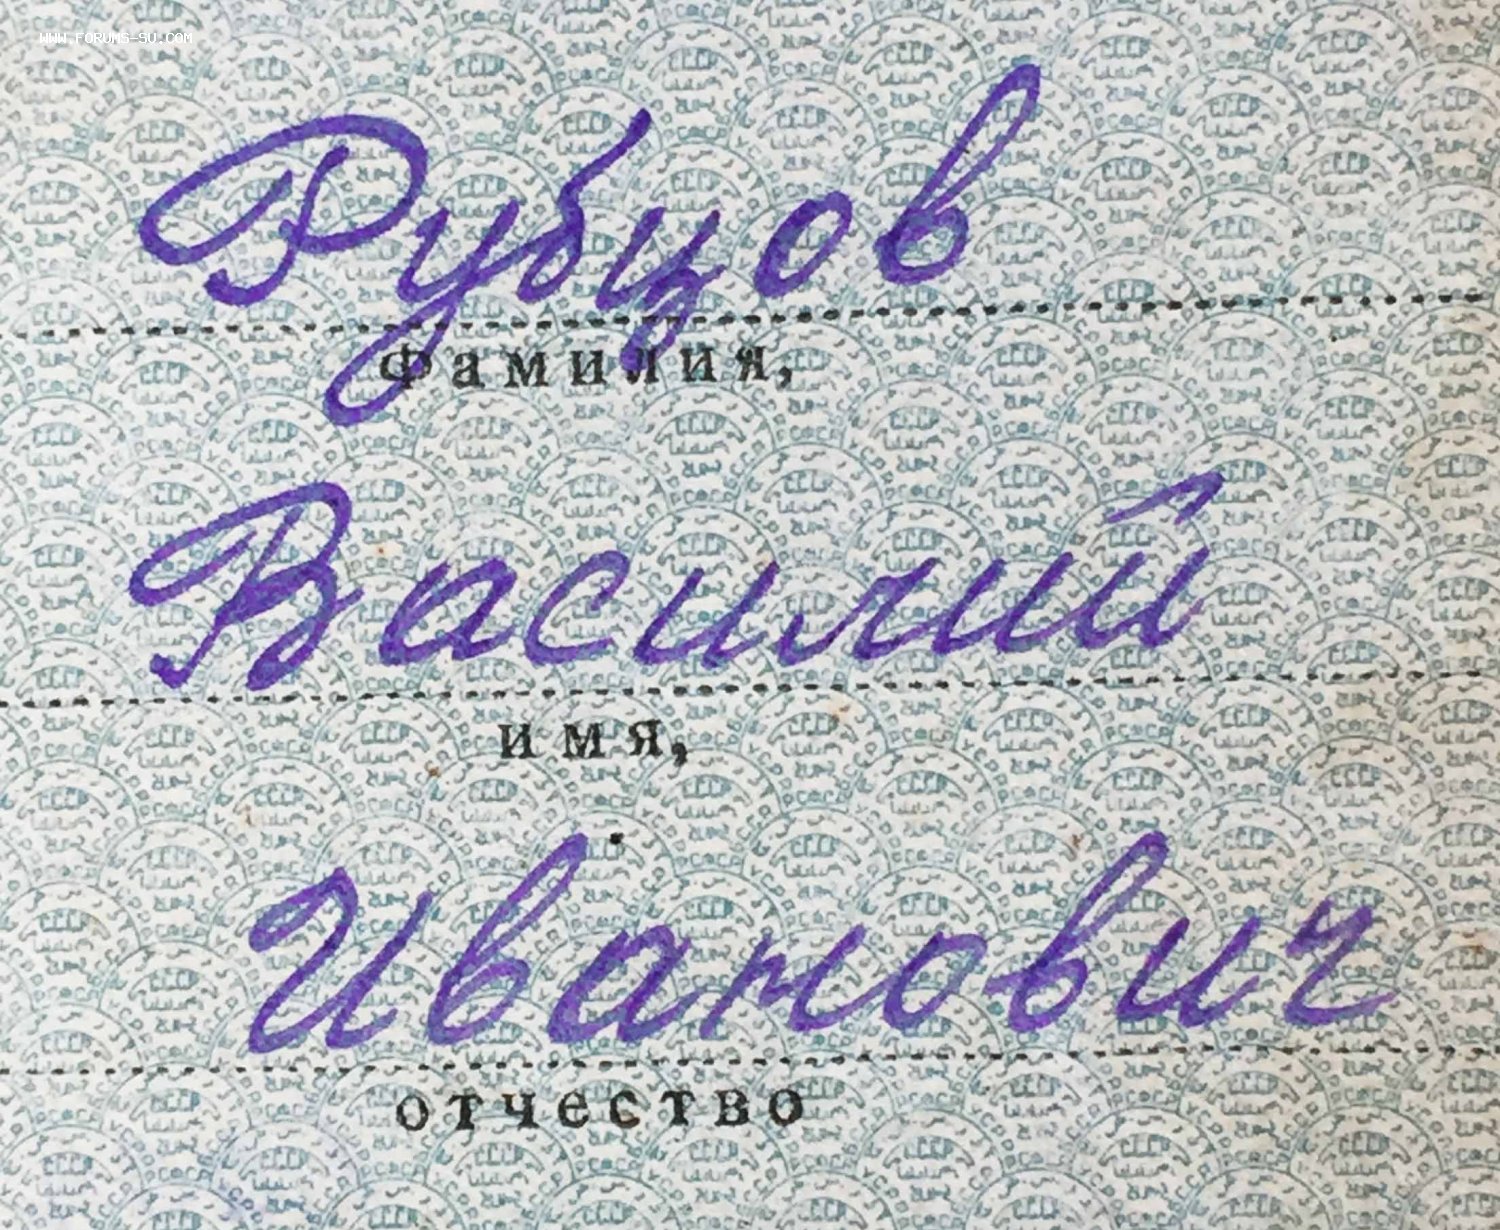 WWW.FORUMS-SU.COM
Рубцов
Фамилия,
Василий
имя,
Иванович
отчество